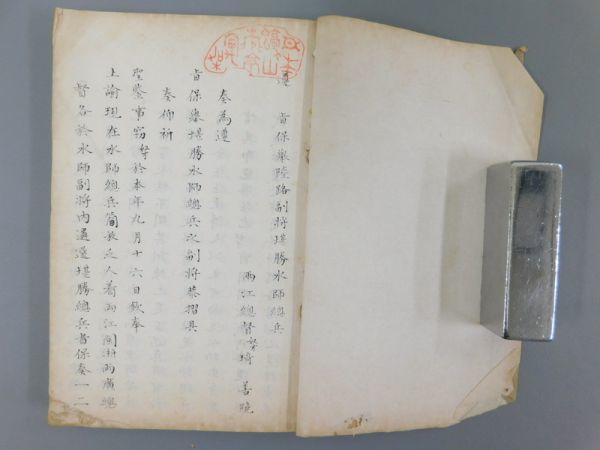 遵　旨保舉陸路副將堪勝水師總兵
兩江總督奴才琦　善跪
奏為遵
旨保舉堪勝水師總兵之副將恭摺具
奏仰祈
聖鑒事竊奴才於本年九月十六日欽奉
上諭現在水師總兵簡放乏人着兩江閩浙兩廣總
督各於水師副將內遴選堪勝總兵者保奏一二